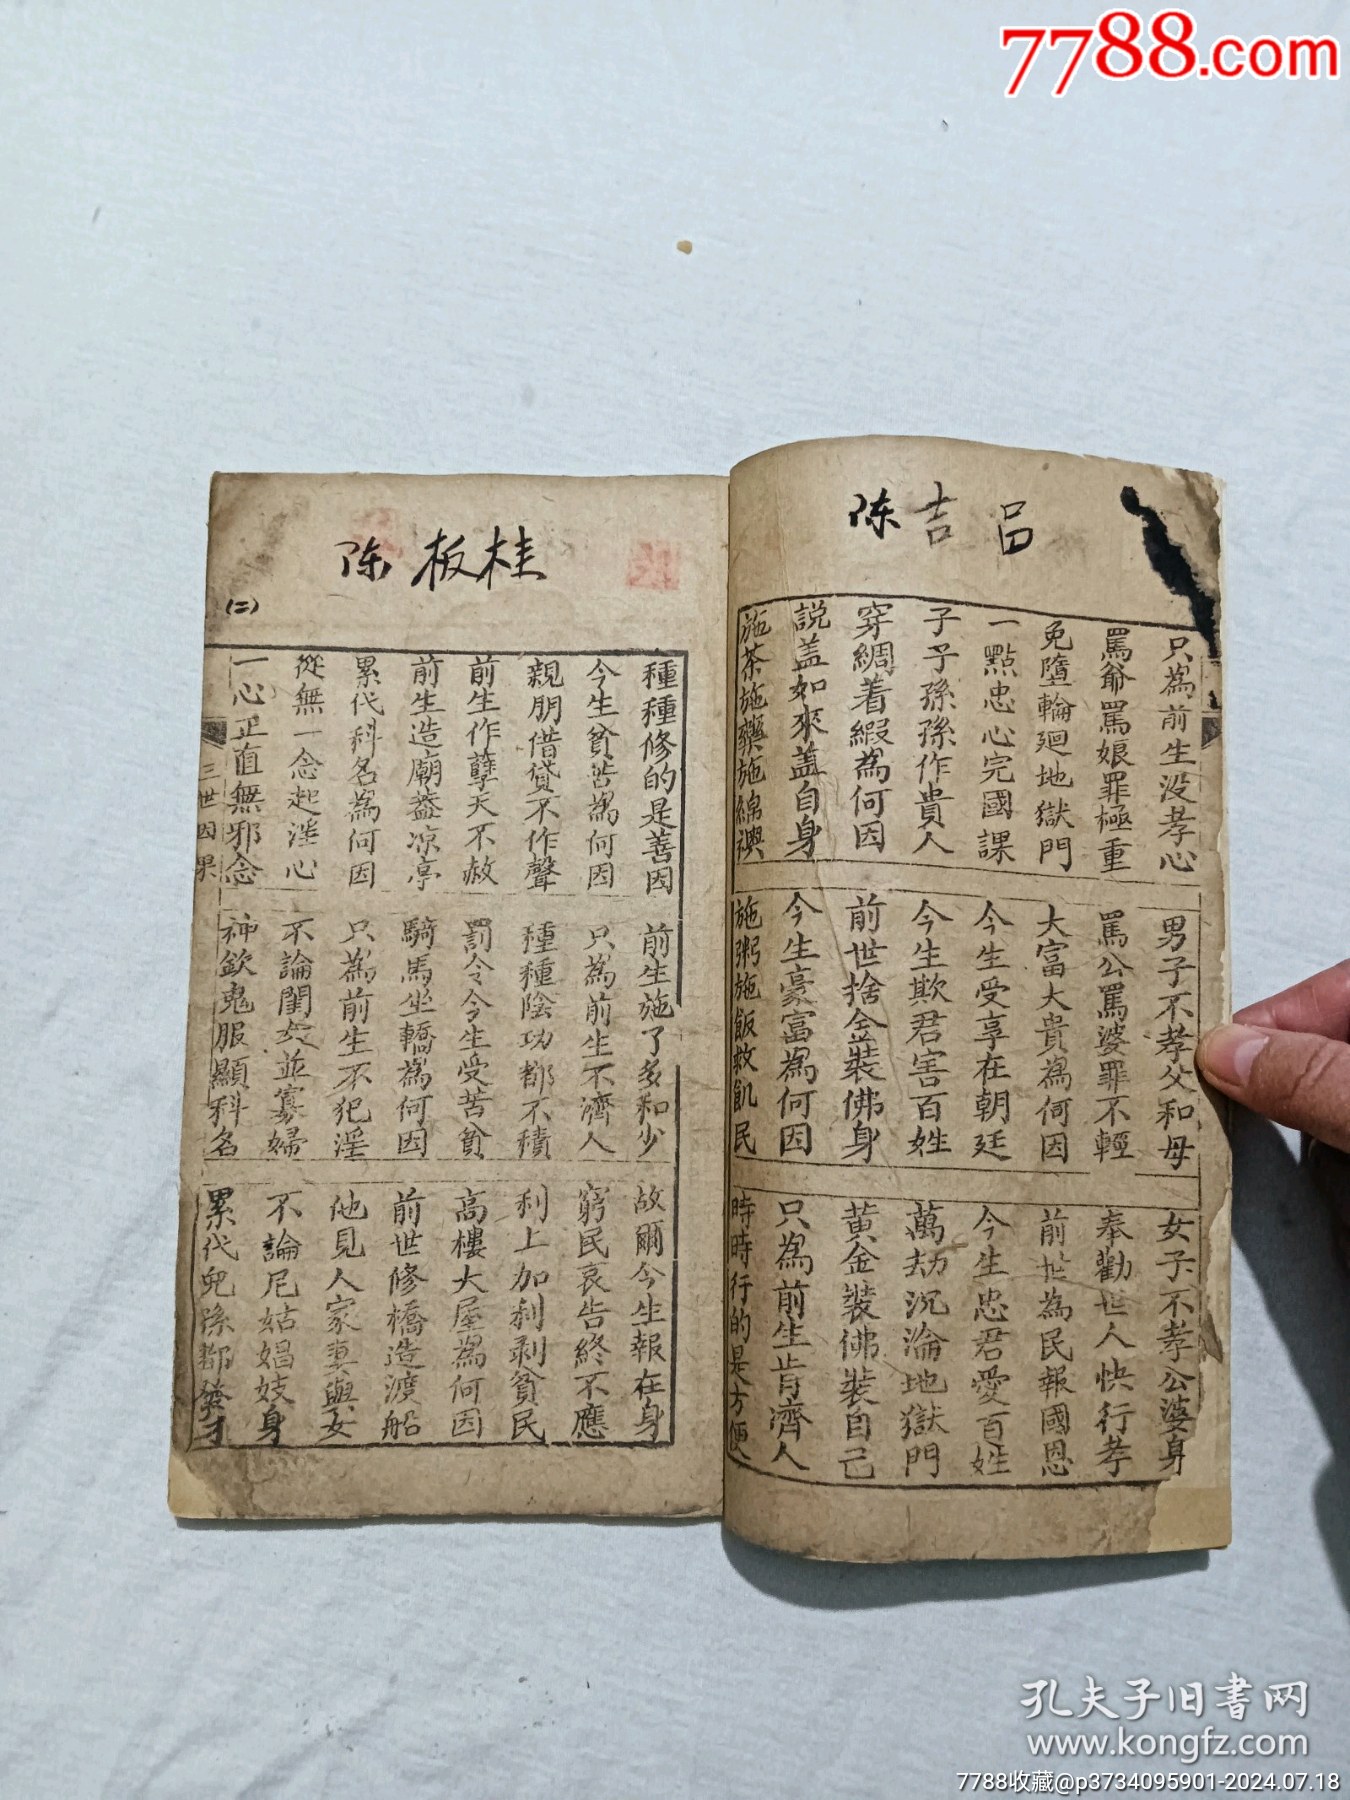 7788.com
陈吉昌
只為前生没孝心 男子不孝父和母 女子不孝公婆身
罵爺罵娘罪極重 罵公罵婆罪不輕 奉勸世人快行孝
免墮輪廻地獄門 大富大貴為何因 前世為民報國恩
一點忠心完國課 今生受享在朝廷 今生忠君愛百姓
子子孫孫作貴人 今生欺君害百姓 萬劫沉淪地獄門
穿綢着緞為何因 前世捨金裝佛身 黃金裝佛裝自己
説盖如來盖自身 今生豪富為何因 只為前生肯濟人
施茶施藥施綿襖 施粥施飯救飢民 時時行的是方便
陈板桂
種種修的是善因 前生施了多和少 故爾今生報在身
今生貧苦為何因 只為前生不濟人 窮民哀告終不應
親朋借貸不作聲 種種陰功都不積 利上加利剥貧民
前生作孽天不赦 罰令今生受苦貧 高樓大屋為何因
前生造廟葢凉亭 騎馬坐轎為何因 前世修橋造渡船
累代科名為何因 只為前生不犯淫 他見人家妻與女
從無一念起淫心 不論閨女並寡婦 不論尼姑娼妓身
一心正直無邪念 神欽鬼服顯科名 累代兒孫都發才
(二)
三世因果
孔夫子旧書网
www.kongfz.com
7788收藏@p3734095901-2024.07.18